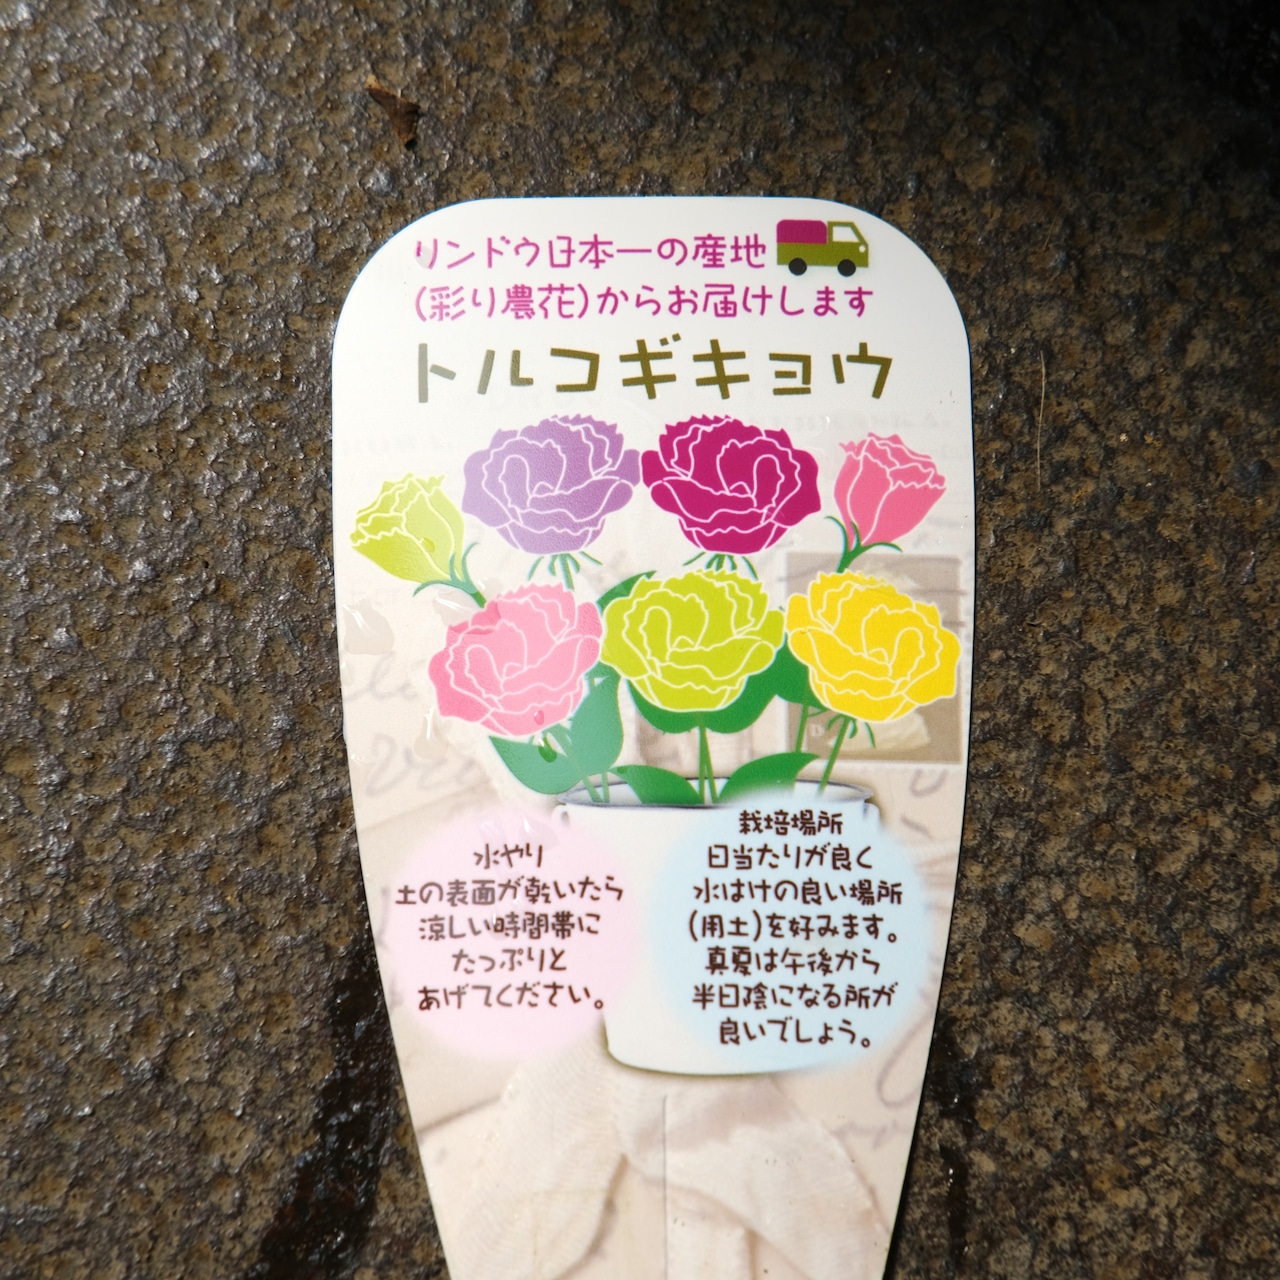 リンドウ日本一の産地
(彩り農花)からお届けします
トルコギキョウ
水やり
土の表面が乾いたら
涼しい時間帯に
たっぷりと
あげてください。
栽培場所
日当たりが良く
水はけの良い場所
(用土)を好みます。
真夏は午後から
半日陰になる所が
良いでしょう。